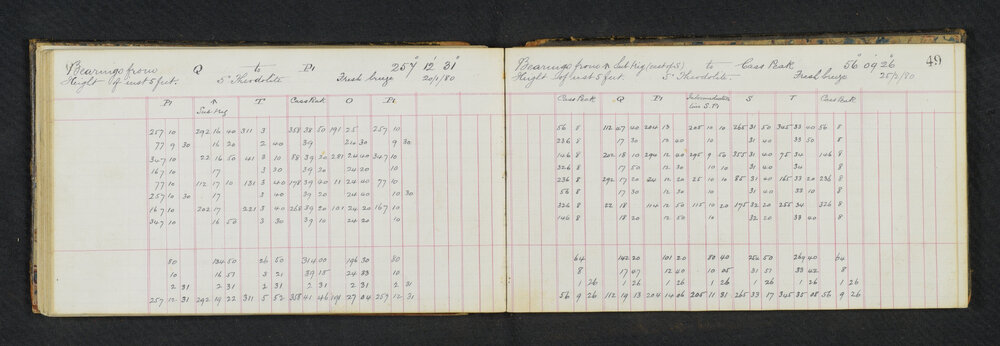 Bearings from Q to P1 257° 12' 31"
Height of inst 5 feet. 5" Theodolite Fresh breeze 20/1/80
P1 Sub trig T Cass Peak O P1
257 10 292 16 40 311 3 358 38 50 191 25 257 10
77 9 30 16 20 2 40 39 24 30 9 30
347 10 22 16 50 41 3 10 88 39 30 281 24 40 347 10
167 10 17 3 30 39 20 24 20 10
77 10 112 17 10 131 3 40 178 39 40 11 24 40 77 10
257 10 30 17 3 40 39 20 24 40 10 30
167 10 202 17 221 3 40 268 39 20 101 24 20 167 10
347 10 16 50 3 30 39 10 24 20 10
80 134 50 26 50 314 00 196 30 80
10 16 51 3 21 39 15 24 33 10
2 31 2 31 2 31 2 31 2 31 2 31
257 12 31 292 19 22 311 5 52 358 41 46 191 27 04 257 12 31
49
Bearings from Sub trig to Cass Peak 56° 09' 26"
Height of inst 5 feet. 5" Theodolite. Fresh breeze 25/2/80
Cass Peak Q P1 Intermediate S T Cass Peak
56 8 112 17 40 204 13 205 10 10 265 31 50 345 33 40 56 8
236 8 17 30 12 40 10 31 40 33 50 8
146 8 202 18 10 294 12 40 295 9 50 355 31 40 75 34 146 8
326 8 17 50 12 30 10 10 31 40 34 8
236 8 292 17 20 24 12 20 25 10 10 85 31 40 165 33 20 236 8
56 8 17 30 12 30 10 31 40 33 10 8
326 8 22 18 114 12 50 115 10 20 175 32 20 255 34 326 8
146 8 18 20 12 50 10 32 20 33 40 8
64 142 20 101 20 80 40 254 50 269 40 64
8 17 47 12 40 10 05 31 51 33 42 8
1 26 1 26 1 26 1 26 1 26 1 26 1 26
56 9 26 112 19 13 204 14 06 205 11 31 265 33 17 345 35 08 56 9 26